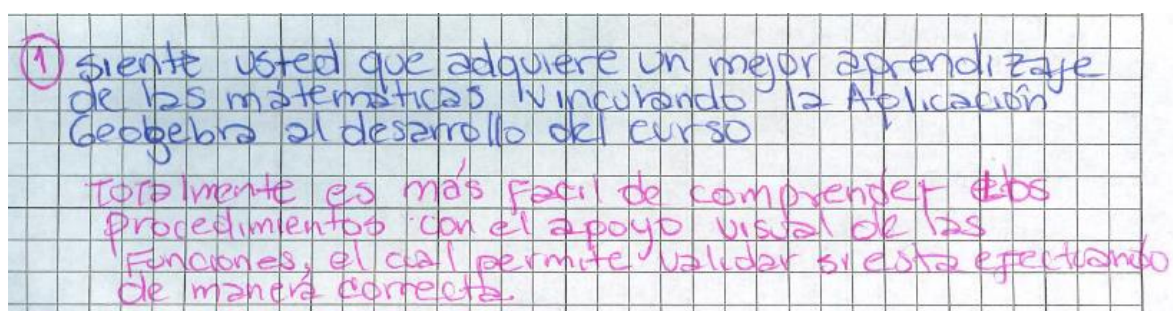 1 Siente usted que adquiere un mejor aprendizaje
de las matematicas vinculando la Aplicación
Geogebra al desarrollo del curso
Totalmente es más facil de comprender los
procedimientos con el apoyo visual de las
Funciones, el cual permite validar si esta efectuando
de manera correcta.